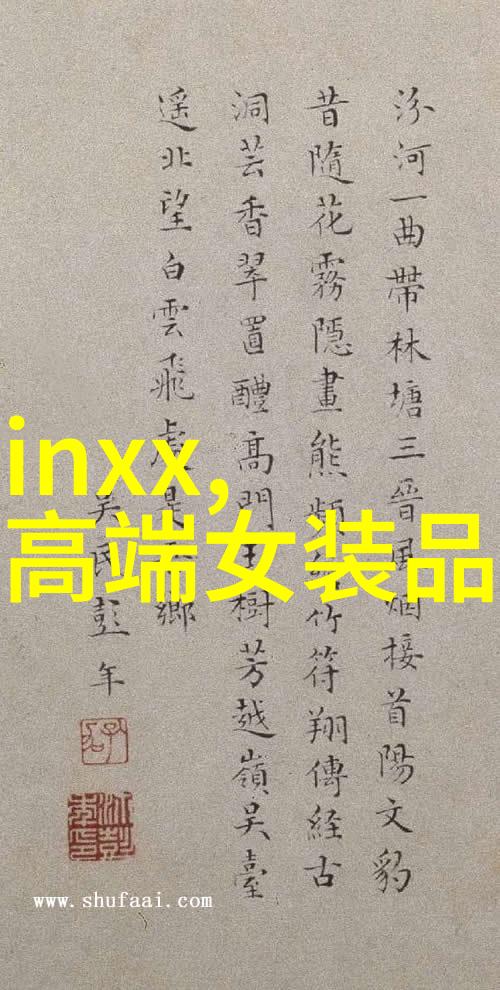 汾河一曲帶林塘三晉風烟接首陽文豹
昔隨花霧隱畫熊頻竹符翔傳經古
洞芸香翠置醴高門玉樹芳越嶺吳臺
遥北望白雲飛處是鄉
吳氏彭年
inxx,
高端女装品
www.shufaai.com